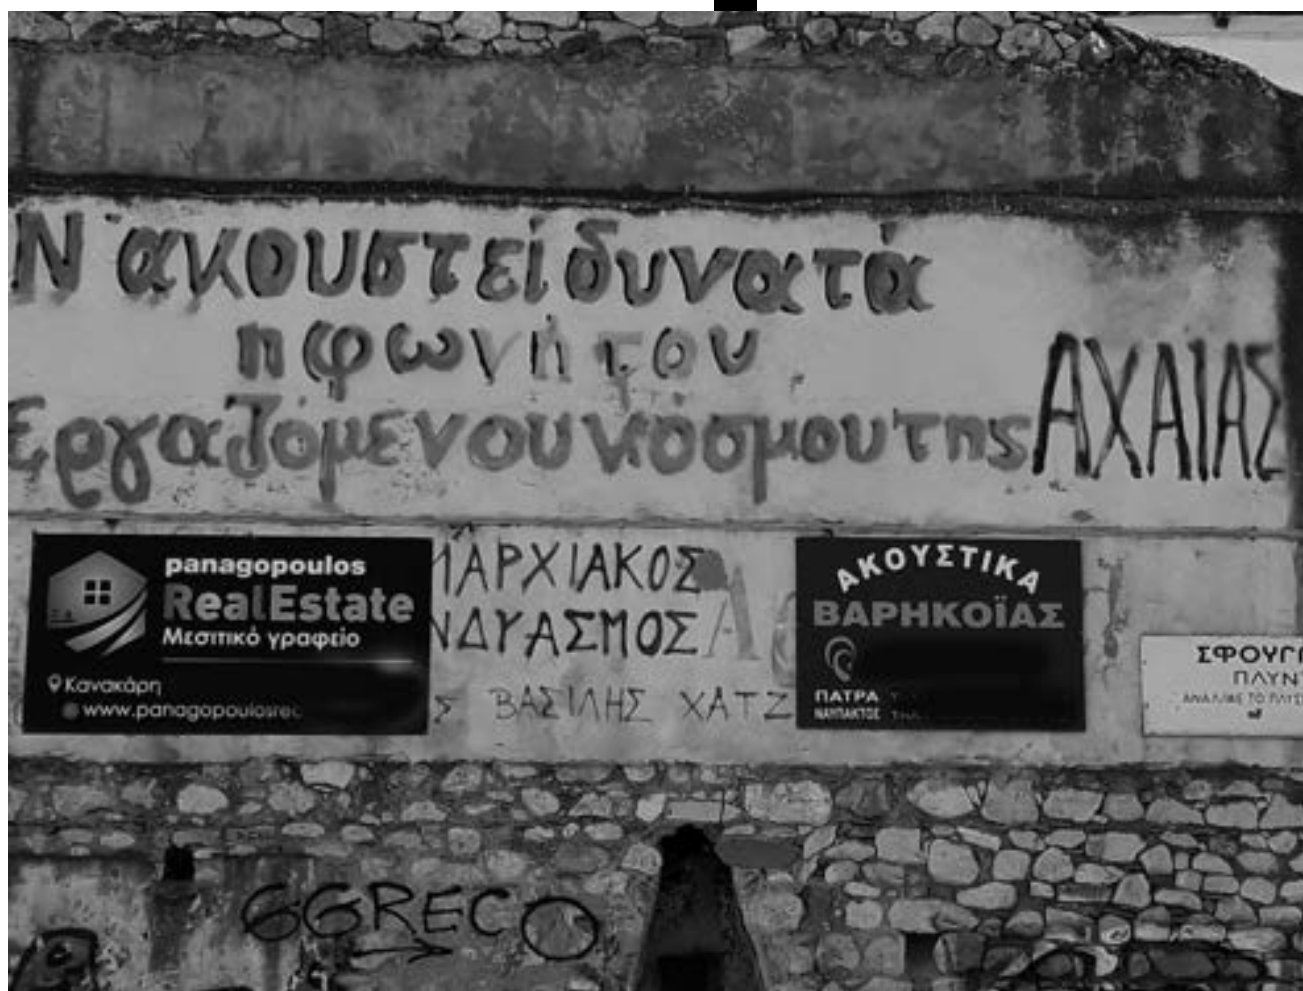 Ν' ακουστεί δυνατά
η φωνή του
εργαζόμενου κόσμου της ΑΧΑΙΑΣ
panagopoulos
RealEstate
Μεσιτικό γραφείο
Κανακάρη
www.panagopoulosrec
ΜΑΡΧΙΑΚΟΣ
ΝΔΥΑΣΜΟΣ
Σ ΒΑΣΙΛΗΣ ΧΑΤΖ
ΑΚΟΥΣΤΙΚΑ
ΒΑΡΗΚΟΪΑΣ
ΠΑΤΡΑ
ΝΑΥΠΑΚΤΟΣ
ΣΦΟΥΓΓ
ΠΛΥΝΤ
GGRECO